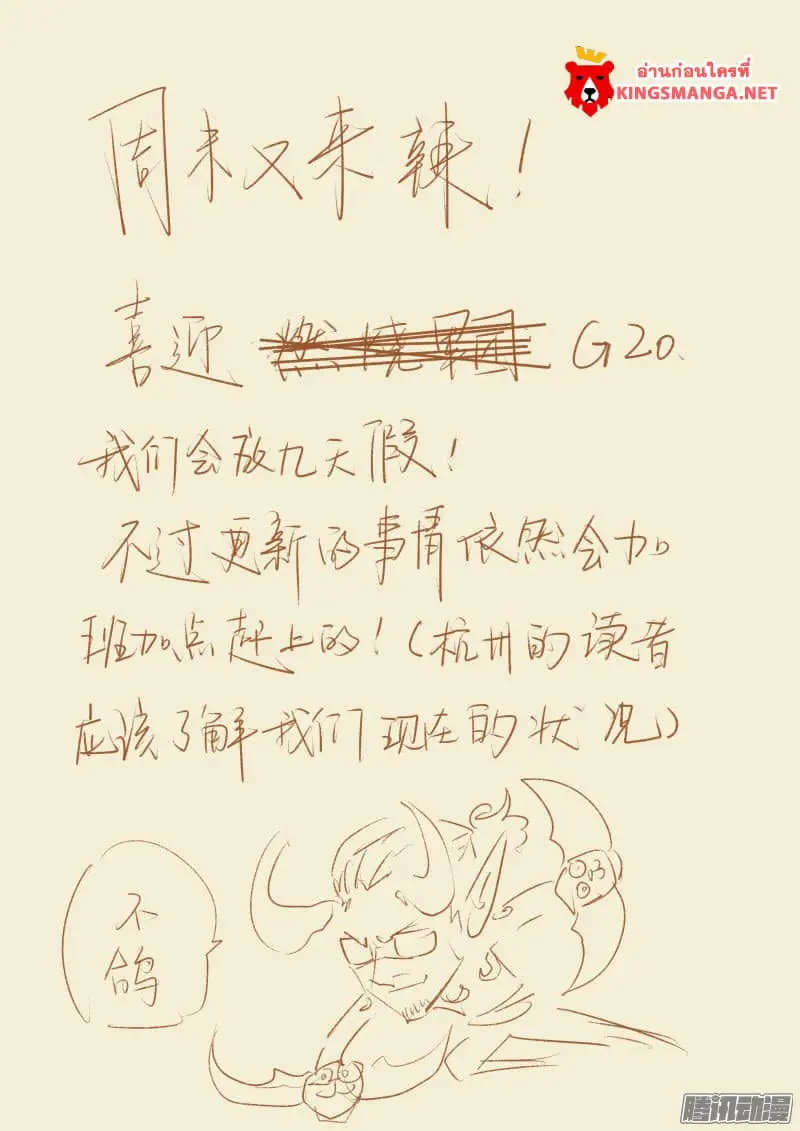 อ่านก่อนใครที่
KINGSMANGA.NET
周末又来辣！
喜迎 燃烧军团 G20、
我们会放九天假！
不过更新的事情依然会加
班加点赶上的！（杭州的读者
应该了解我们现在的状况）
不
鸽
腾讯动漫